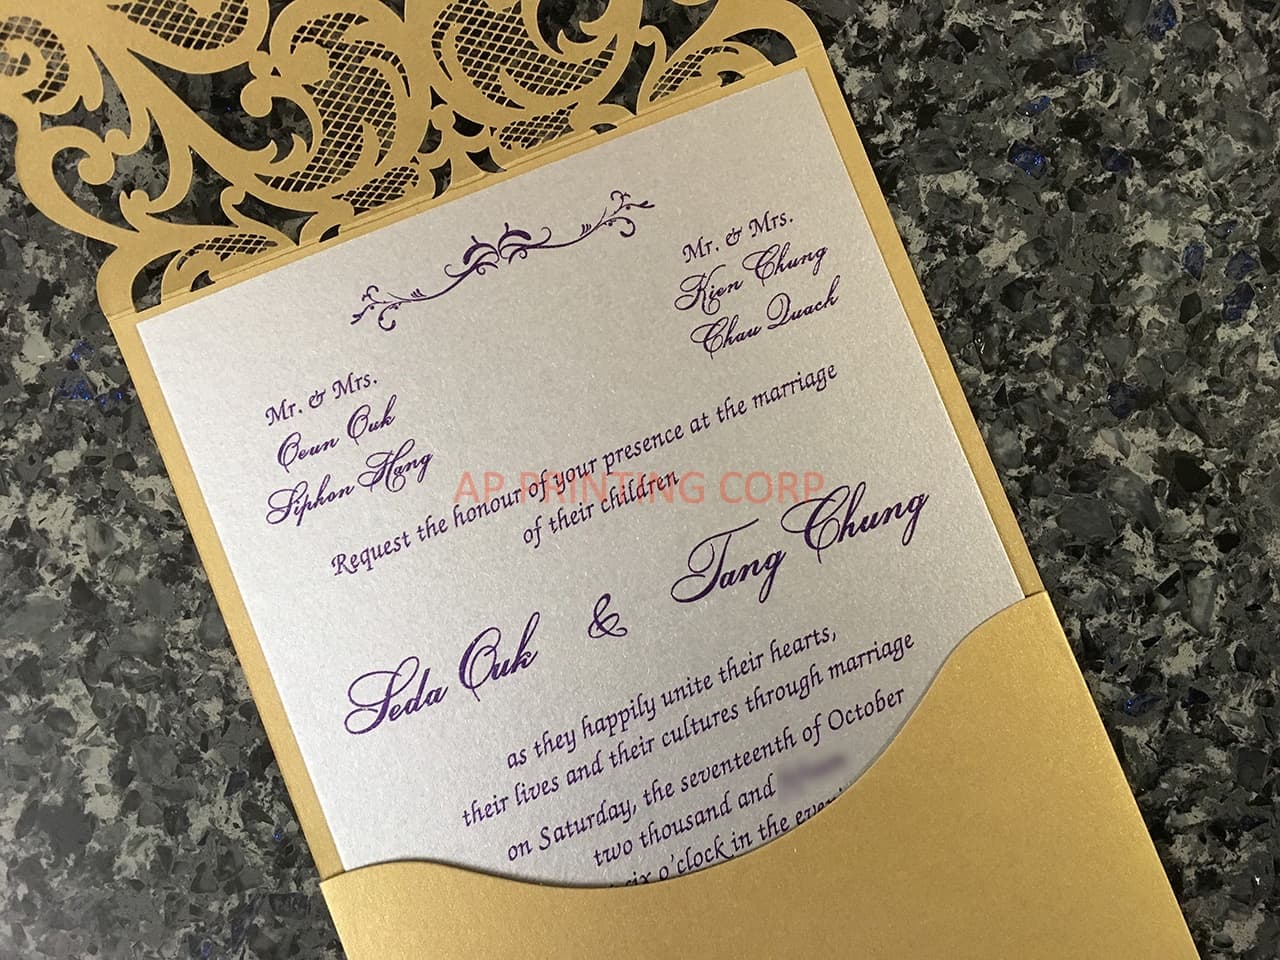 Mr. & Mrs.
Oeun Ouk
Siphon Hang
Mr. & Mrs.
Kien Chung
Chau Quach
Request the honour of your presence at the marriage
of their children
AP PRINTING CORP
Seda Ouk & Tang Chung
as they happily unite their hearts,
their lives and their cultures through marriage
on Saturday, the seventeenth of October
two thousand and
six o'clock in the